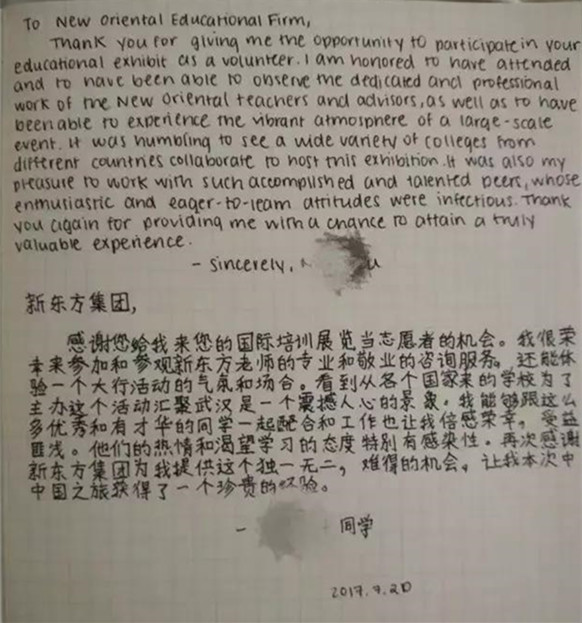 To New Oriental Educational Firm,
Thank you for giving me the opportunity to participate in your
educational exhibit as a volunteer. I am honored to have attended
and to have been able to observe the dedicated and professional
work of the New Oriental teachers and advisors, as well as to have
been able to experience the vibrant atmosphere of a large-scale
event. It was humbling to see a wide variety of colleges from
different countries collaborate to host this exhibition. It was also my
pleasure to work with such accomplished and talented peers, whose
enthusiastic and eager-to-learn attitudes were infectious. Thank
you again for providing me with a chance to attain a truly
valuable experience.
- Sincerely,
新东方集团,
感谢您给我来您的国际培训展览当志愿者的机会。我很荣
幸来参加和参观新东方老师的专业和敬业的咨询服务,还能体
验一个大行活动的气氛和场合。看到从各个国家来的学校为了
主办这个活动汇聚武汉是一个震撼人心的景象。我能够跟这么
多优秀和有才华的同学一起配合和工作也让我倍感荣幸,受益
匪浅。他们的热情和渴望学习的态度特别有感染性。再次感谢
新东方集团为我提供这个独一无二,难得的机会,让我本次中
中国之旅获得了一个珍贵的经验。
- 同学
2017.7.20